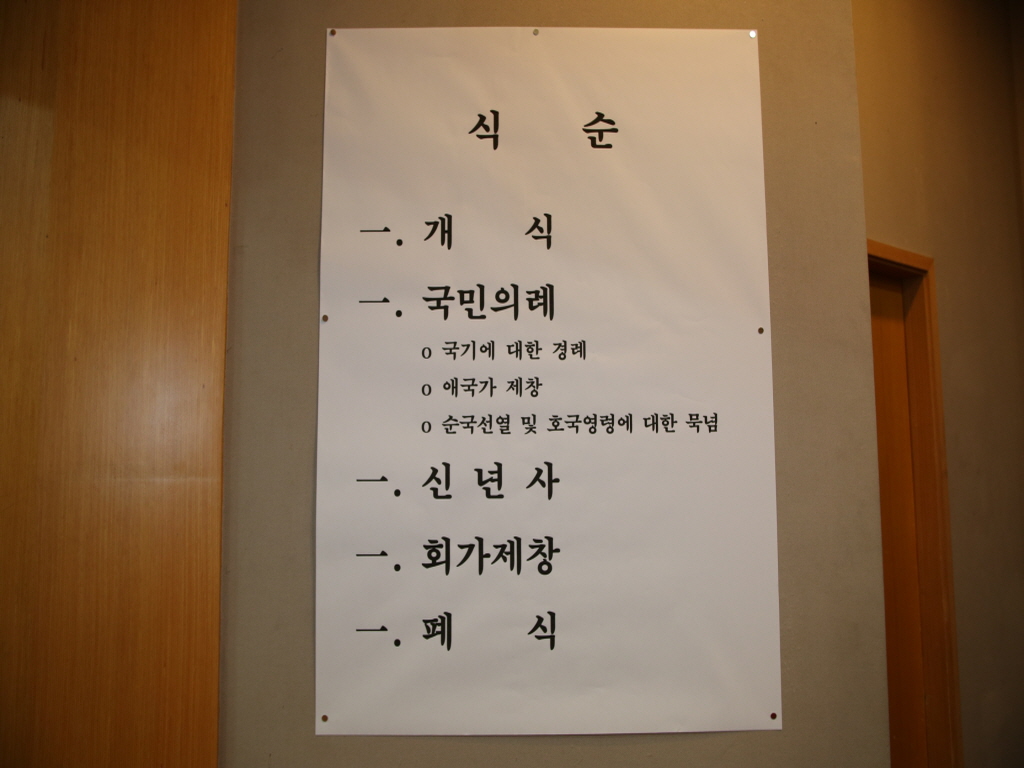 식 순
一. 개 식
一. 국민의례
o 국기에 대한 경례
o 애국가 제창
o 순국선열 및 호국영령에 대한 묵념
一. 신 년 사
一. 회가제창
一. 폐 식